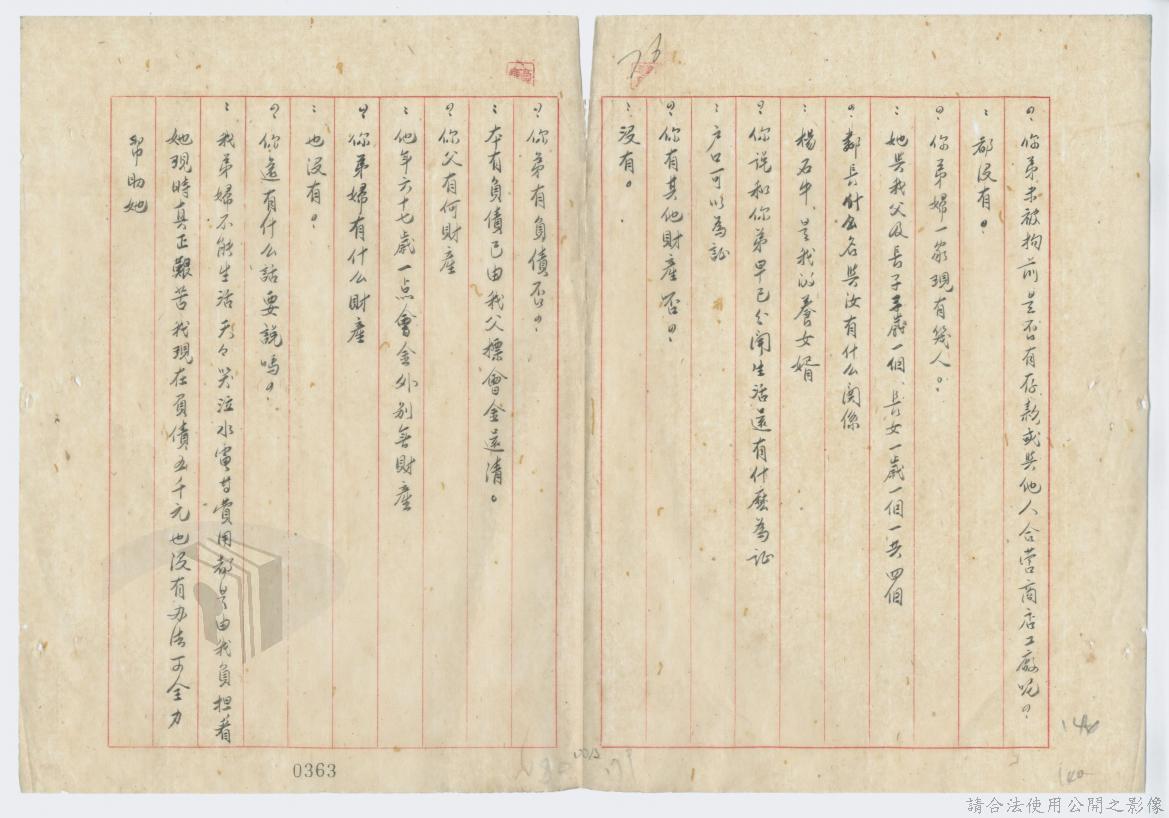 ？你弟未被拘前是否有存款或與他人合营商店工廠呢？
：都没有。
？你弟婦一家現有幾人。
：她與我父及長子三歲一個、長女一歲一個一共四個
？鄰長什么名與汝有什么関係
：楊石牛、是我的養女婿
？你说和你弟早已分開生活還有什麼為証
：户口可以為証
？你有其他財產否？
：没有。
？你弟有負債否？
：本有負債已由我父標會金還清。
？你父有何財產
：他年六十七歲一点會金外别無財產
？你弟婦有什么財產
：也没有。
？你還有什么話要説嗎？
：我弟婦不能生活天々哭泣水電等費用都是由我負担着
她現時真正艱苦我現在負債五千元也没有办法可全力
帮助她
0363
140
請合法使用公開之影像